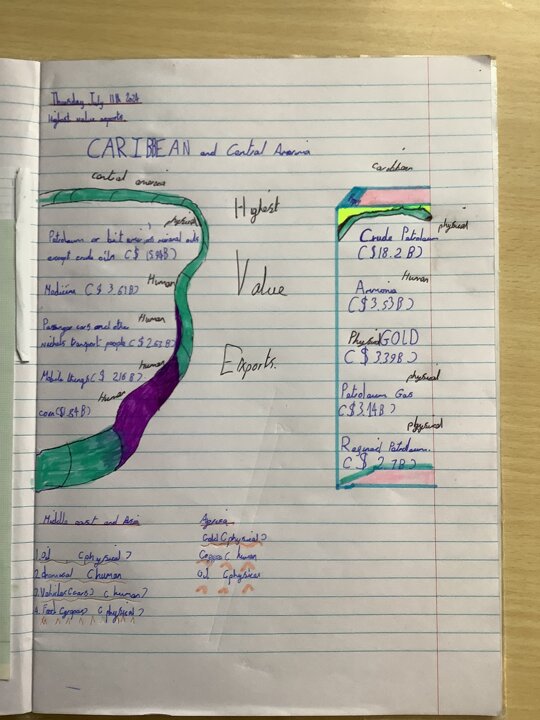 Thursday July 11th 2024
Highest value exports.
CARIBBEAN and Central America
central america
physical
Petroleum or bituminous mineral oils
except crude oils C$ 15.98B)
Human
Medicine C$ 3.63B)
Human
Passenger cars and other
vehicles transport people C$ 2.62B)
human
Mobile things C$ 2.16B)
human
Highest
Value
Exports.
caribbean
physical
Crude Petroleum
C$18.2 B)
Human
Amonia
C$3.53B)
Physical GOLD
C$ 3.39B)
physical
Petroleum Gas
C$3.14B)
physical
Refined Petroleum.
C$ 2.7B)
Middle east and Asia
1. oil Cphysical)
2. chemical Chuman
3. Vehicles Ccars) C human)
4. Food Ccrops) C physical)
Africa
Gold Cphysical)
Copper C human
Oil Cphysical